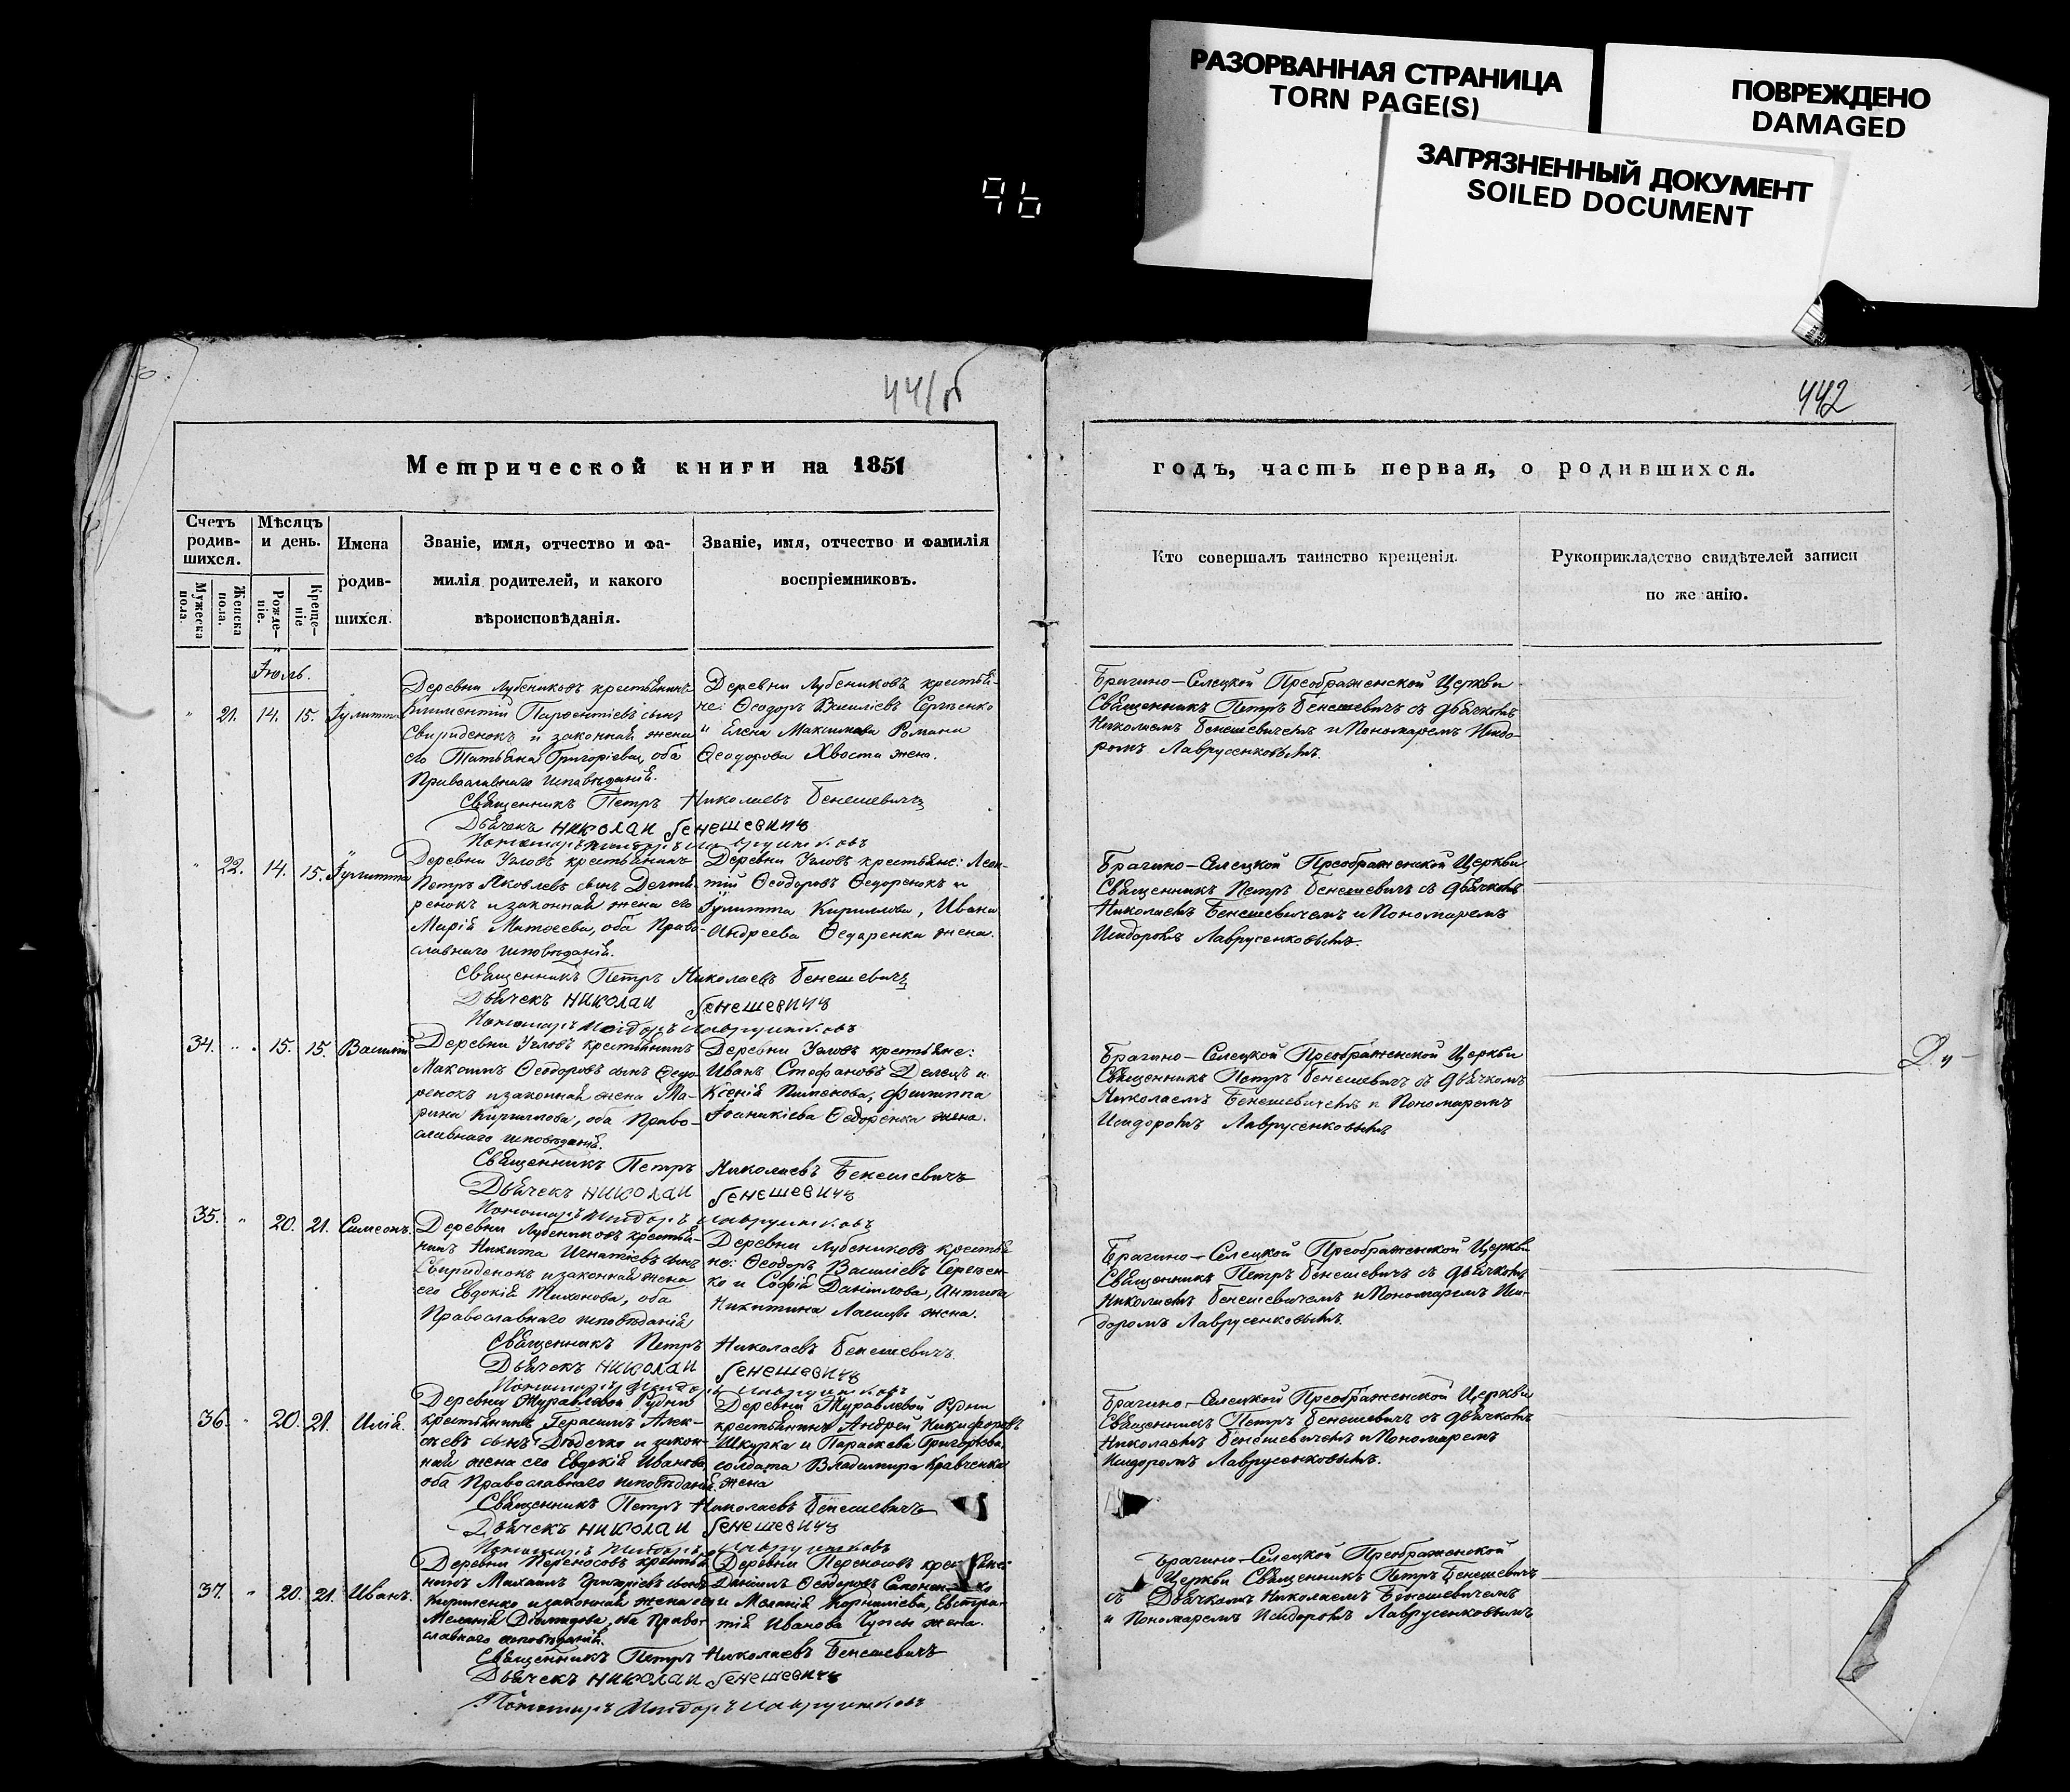 РАЗОРВАННАЯ СТРАНИЦА
TORN PAGE(S)
ПОВРЕЖДЕНО
DAMAGED
ЗАГРЯЗНЕННЫЙ ДОКУМЕНТ
SOILED DOCUMENT
96
441 об
442
Метрической книги на 1851
годъ, часть первая, о родившихся.
Счетъ родив-шихся.
Мужеска пола.
Женска пола.
Мѣсяцъ и день.
Рожде-ніе.
Креще-ніе
Имена
родив-
шихся.
Званіе, имя, отчество и фа-
милія родителей, и какого
вѣроисповѣданія.
Званіе, имя, отчество и фамилія
воспріемниковъ.
Кто совершалъ таинство крещенія.
Рукоприкладство свидѣтелей записи
по же анію.
Іюль.
" 21. 14. 15. Іулитта
Деревни Лубениковъ крестьянинъ
Климентій Парфентіевъ сынъ
Свириденокъ и законная жена
его Татьяна Григоріева, оба
Православнаго исповѣданія.
Деревни Лубениковъ крестья-
не: Ѳеодоръ Василіевъ Сергѣенко
и Елена Максимова Романа
Ѳеодорова Хвоста жена.
Брагино-Селецкой Преображенской Церкви
Священникъ Петръ Бенешевичъ съ Дьячкомъ
Николаемъ Бенешевичемъ и Пономаремъ Исидо-
ромъ Лаврусенковымъ.
Священникъ Петръ Николаевъ Бенешевичъ
Дьячекъ Николай Бенешевичъ
" 22. 14. 15. Іулитта
Деревни Угловъ крестьянинъ
Петръ Яковлевъ сынъ
ренокъ и законная жена его
Марія Матѳеева, оба Право-
славнаго исповѣданія.
Деревни Угловъ крестьяне: Леон-
тій Ѳеодоровъ Ѳедоренокъ и
Іулитта Кириллова, Ивана
Андреева Ѳедаренка жена.
Брагино-Селецкой Преображенской Церкви
Священникъ Петръ Бенешевичъ съ Дьячкомъ
Николаемъ Бенешевичемъ и Пономаремъ
Исидоромъ Лаврусенковымъ.
Священникъ Петръ Николаевъ Бенешевичъ
Дьячекъ Николай Бенешевичъ
Пономарь Исидоръ
34. " 15. 15. Василій
Деревни Угловъ крестьянинъ
Максимъ Ѳеодоровъ сынъ Ѳедо-
ренокъ и законная жена Ма-
рина Кириллова, оба Право-
славнаго исповѣданія.
Деревни Угловъ крестьяне:
Иванъ Стефановъ Делецъ и
Ксенія Пименова, Филиппа
Іоаникіева Ѳедоренка жена.
Брагино-Селецкой Преображенской Церкви
Священникъ Петръ Бенешевичъ съ Дьячкомъ
Николаемъ Бенешевичемъ и Пономаремъ
Исидоромъ Лаврусенковымъ
Священникъ Петръ Николаевъ Бенешевичъ
Дьячекъ Николай Бенешевичъ
Пономарь Исидоръ
35. " 20. 21. Симеонъ.
Деревни Лубениковъ крестья-
нинъ Никита Игнатіевъ сынъ
Свириденокъ и законная жена
его Евдокія Тихонова, оба
Православнаго исповѣданія
Деревни Лубениковъ крестья
не: Ѳеодоръ Василіевъ Сергѣен-
ко и Софія Даніилова, Антипа
Никитина жена.
Брагино-Селецкой Преображенской Церкви
Священникъ Петръ Бенешевичъ съ Дьячкомъ
Николаемъ Бенешевичемъ и Пономаремъ Иси-
доромъ Лаврусенковымъ.
Священникъ Петръ Николаевъ Бенешевичъ
Дьячекъ Николай Бенешевичъ
36. " 20. 21. Илія.
Деревни Журавлевой Рудни
крестьянинъ Герасимъ Алек-
сѣевъ сынъ Дюдечко и закон-
ная жена его Евдокія Иванова,
оба Православнаго исповѣданія
Деревни Журавлевой Рудни
крестьянинъ Андрей Никифоровъ
Шкурка и Параскева Григорьева,
солдата Владимира Кравченка
жена
Брагино-Селецкой Преображенской Церкви
Священникъ Петръ Бенешевичъ съ Дьячкомъ
Николаемъ Бенешевичемъ и Пономаремъ
Исидоромъ Лаврусенковымъ.
Священникъ Петръ Николаевъ Бенешевичъ
Дьячекъ Николай Бенешевичъ
37. " 20. 21. Иванъ.
Деревни Переносовъ крестья
нинъ Михаилъ Григоріевъ сынъ
Кириленко и законная жена его
Меланія Діомидова, оба Право-
славнаго исповѣданія.
Деревни Переносовъ крестьяне:
Даніилъ Ѳеодоровъ
и Меланія Корниліева, Евстра-
тія Иванова жена.
Брагино-Селецкой Преображенской
Церкви Священникъ Петръ Бенешевичъ
съ Дьячкомъ Николаемъ Бенешевичемъ
и Пономаремъ Исидоромъ Лаврусенковымъ
Священникъ Петръ Николаевъ Бенешевичъ
Дьячекъ Николай Бенешевичъ
Пономарь Исидоръ